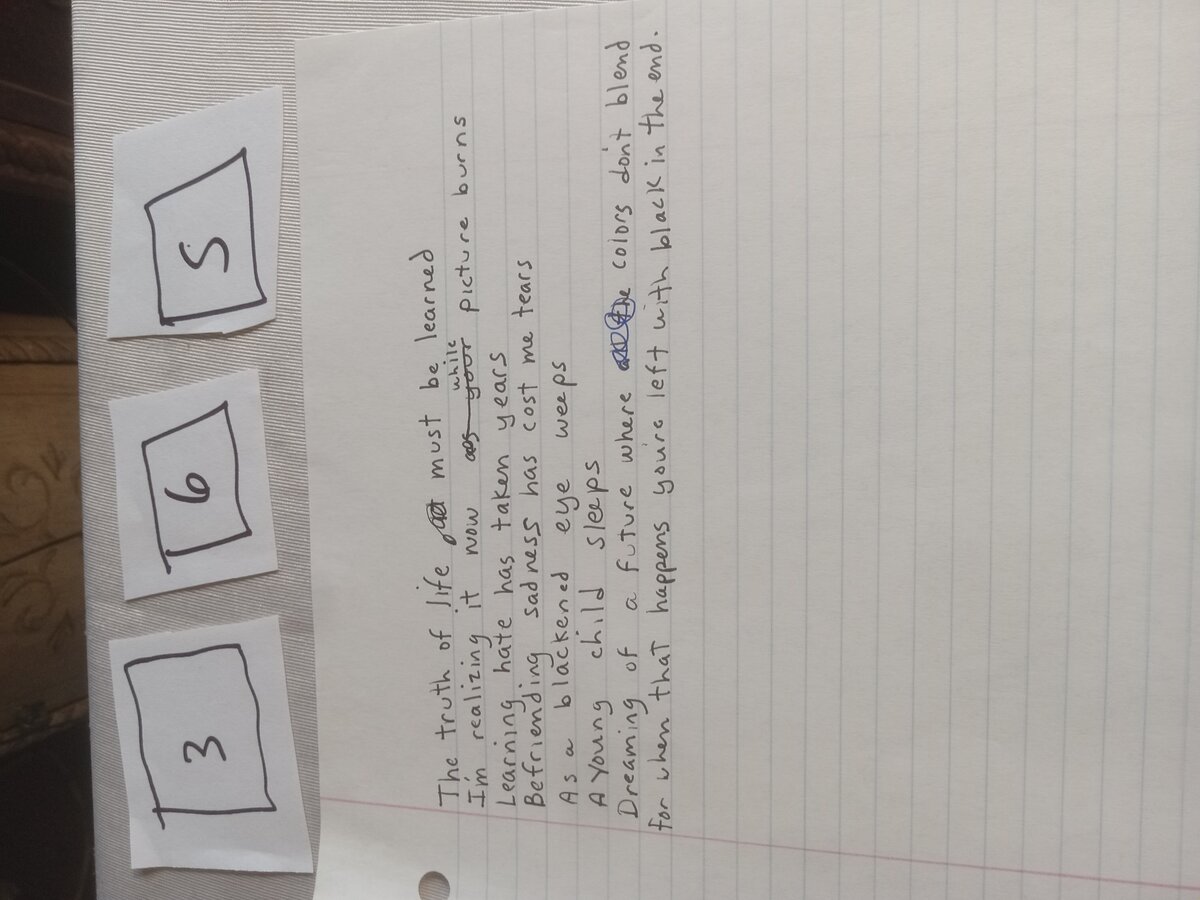 3
6
5
The truth of life must be learned
I'm realizing it now while picture burns
Learning hate has taken years
Befriending sadness has cost me tears
As a blackened eye weeps
A Young child sleeps
Dreaming of a future where colors don't blend
for when that happens you're left with black in the end.